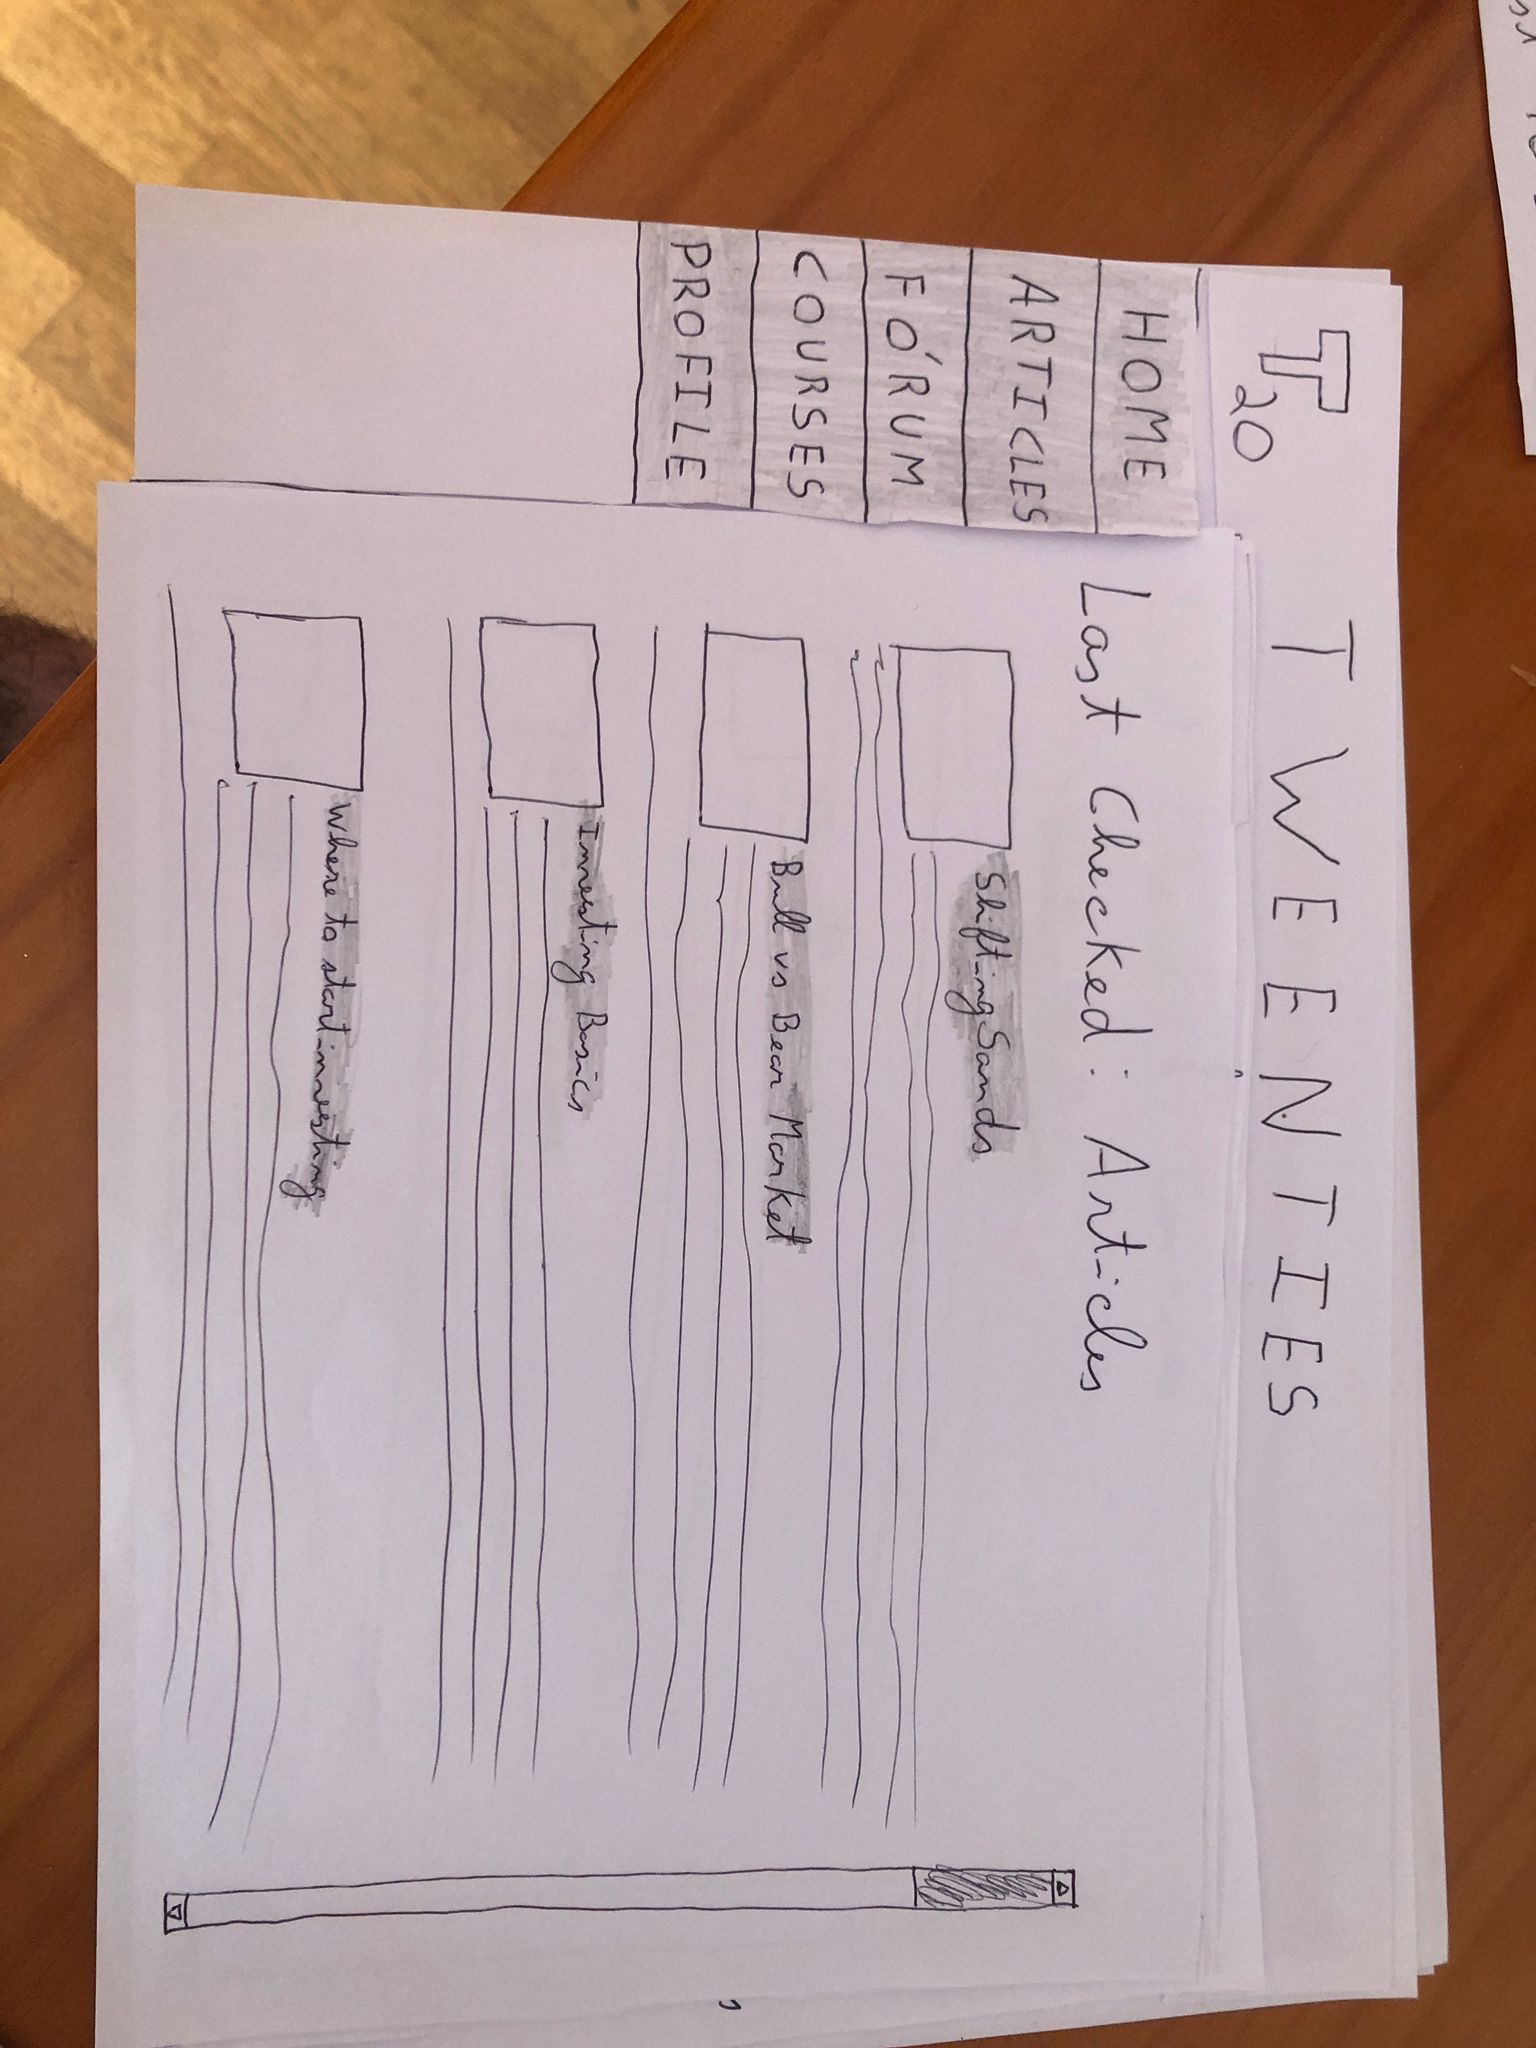 T20
TWEENTIES
HOME
ARTICLES
FÓRUM
COURSES
PROFILE
Last Checked: Articles
Shifting Sands
Bull vs Bear Market
Investing Basics
Where to start investing